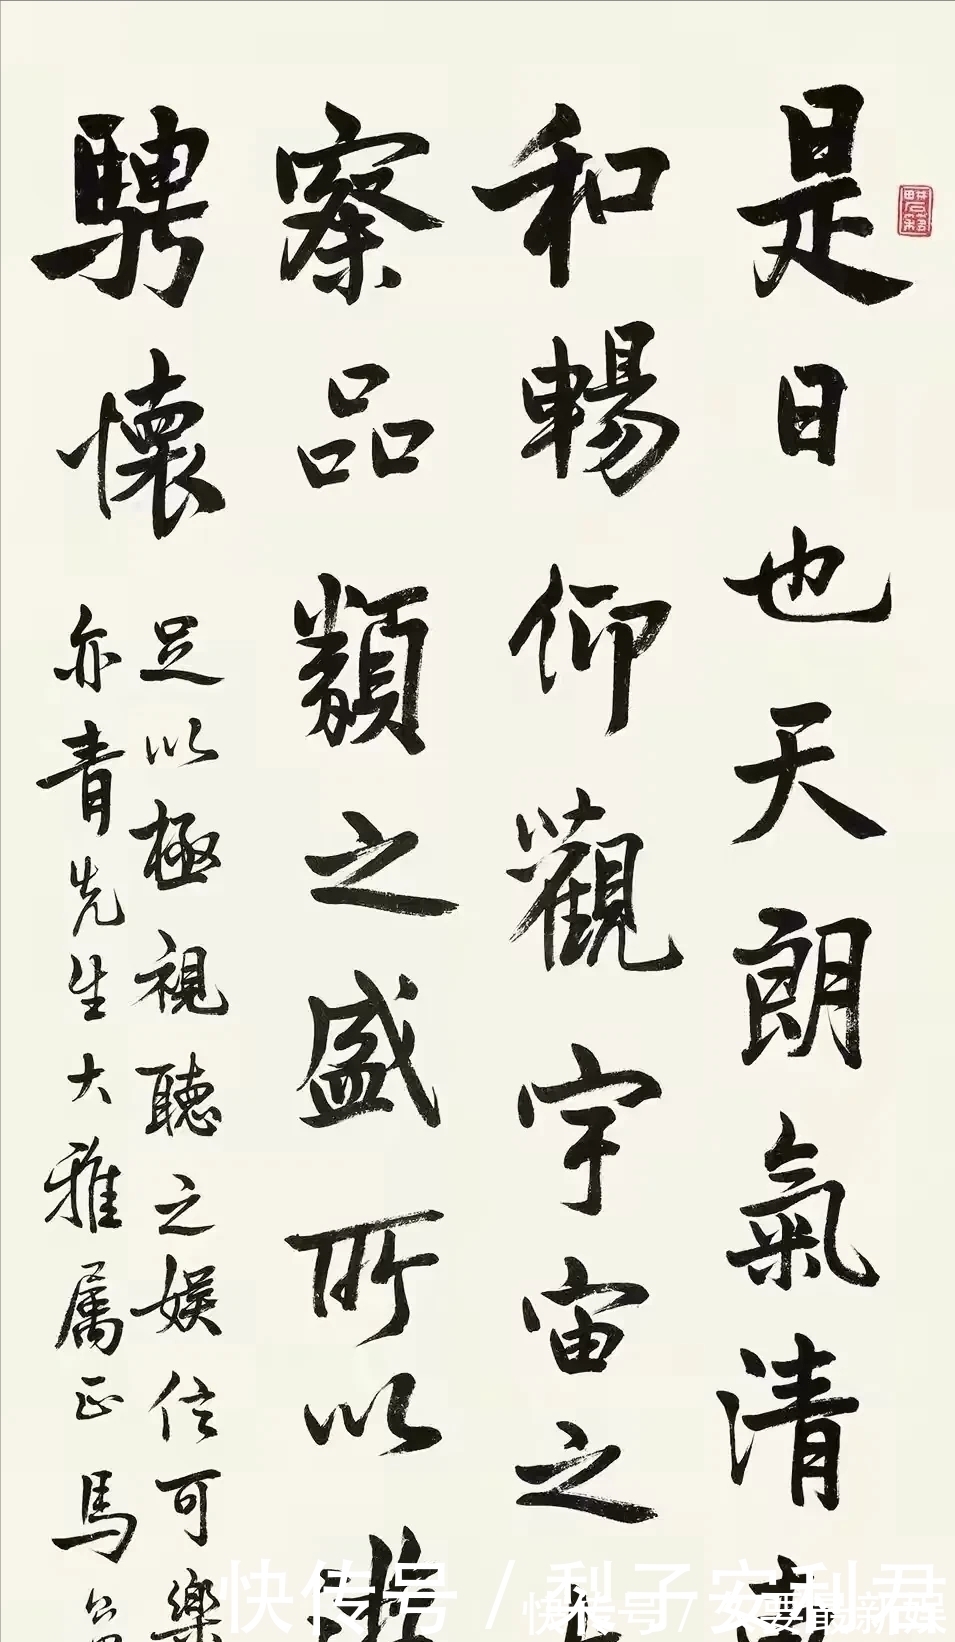 是日也天朗氣清
和暢仰觀宇宙之
察品類之盛所以遊
騁懷
足以極視聽之娱信可樂
亦青先生大雅属正 馬公
快传号 / 梨子安利君